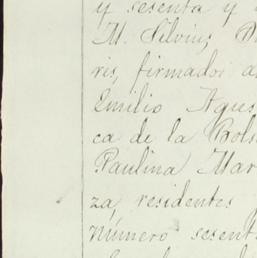 y sesenta y
M. Silvius,
ris, firmados
Emilio Agues
ca de la Bols
Paulina Mar
za, residentes
número sesent